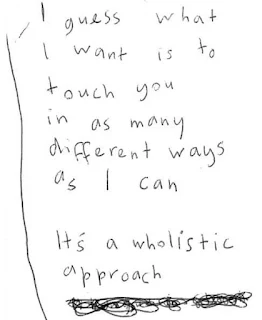 I guess what
I want is to
touch you
in as many
different ways
as I can
It's a wholistic
approach